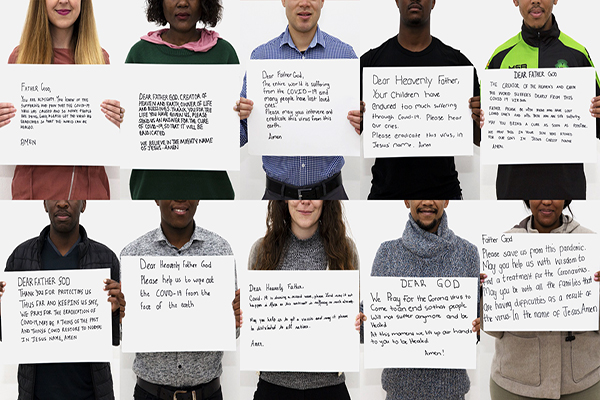 FATHER GOD,
YOU ARE ALMIGHTY. YOU KNOW OF THE
SUFFERING AND PAIN THAT THE COVID-19
VIRUS HAS CAUSED AND SO MANY PEOPLE
ARE DYING. LORD PLEASE LET THE VIRUS BE
ERADICATED SO THAT THE WORLD CAN BE
HEALED.
AMEN
DEAR FATHER GOD, CREATOR OF
HEAVEN AND EARTH, OWNER OF LIFE
AND BLESSINGS, THANK YOU FOR THE
LIFE YOU HAVE GIVEN US. PLEASE
PROVIDE AN ANSWER FOR THE CURE
TO COVID-19, SO THAT IT WILL BE
ERADICATED
WE BELIEVE IN THE MIGHTY NAME
OF JESUS. AMEN
Dear Father God,
The entire world is suffering
from the COVID-19 and
many people have lost loved
ones.
Please may you intervene and
eradicate this virus from this
earth.
Amen
Dear Heavenly Father,
Your Children have
endured too much suffering
through Covid-19. Please hear
our cries.
Please eradicate this virus, in
Jesus' name. Amen
DEAR FATHER GOD
THE CREATOR OF THE HEAVENS AND EARTH
THE WORLD SUFFERS DEARLY FROM THIS
COVID 19 VIRUS
AMEN
DEAR FATHER GOD
THANK YOU FOR PROTECTING US
THUS FAR AND KEEPING US SAFE,
WE PRAY FOR THE ERADICATION OF
COVID-19, MAY BE A THING OF THE PAST
AND THINGS COULD RESTORE TO NORMAL
IN JESUS NAME, AMEN
Dear Heavenly Father God
Please help us to wipe out
the COVID-19 from the
face of the earth
Dear Heavenly Father,
Covid-19 is causing
May you help us to get a vaccine and may it please
be distributed to all nations.
Amen.
DEAR GOD
We Pray for the Corona virus to
come to an end so that people
will not suffer anymore and be
Healed
At this moment we lift up our hands
to you to be Healed
Amen!
Father God
Please save us from this pandemic.
May you help us with wisdom to
find a treatment for the Coronavirus.
May you be with all the families that
are having difficulties as a result of
the virus. In the name of Jesus. Amen